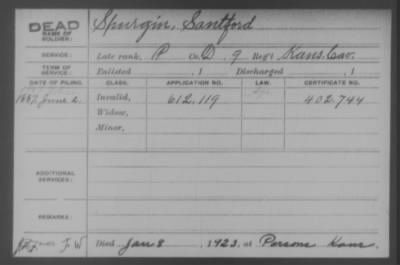 DEAD
NAME OF SOLDIER:
Spurgin, Santford
SERVICE:
Late rank, P Co. D, 9 Reg't Kans. Cav.
TERM OF SERVICE:
Enlisted , 1 Discharged , 1
DATE OF FILING. CLASS. APPLICATION NO. LAW. CERTIFICATE NO.
1887 June 2. Invalid, 612.119 402.744
Widow,
Minor,
ADDITIONAL SERVICES:
REMARKS:
Died Jan 8, 1923, at Parsons Kans.